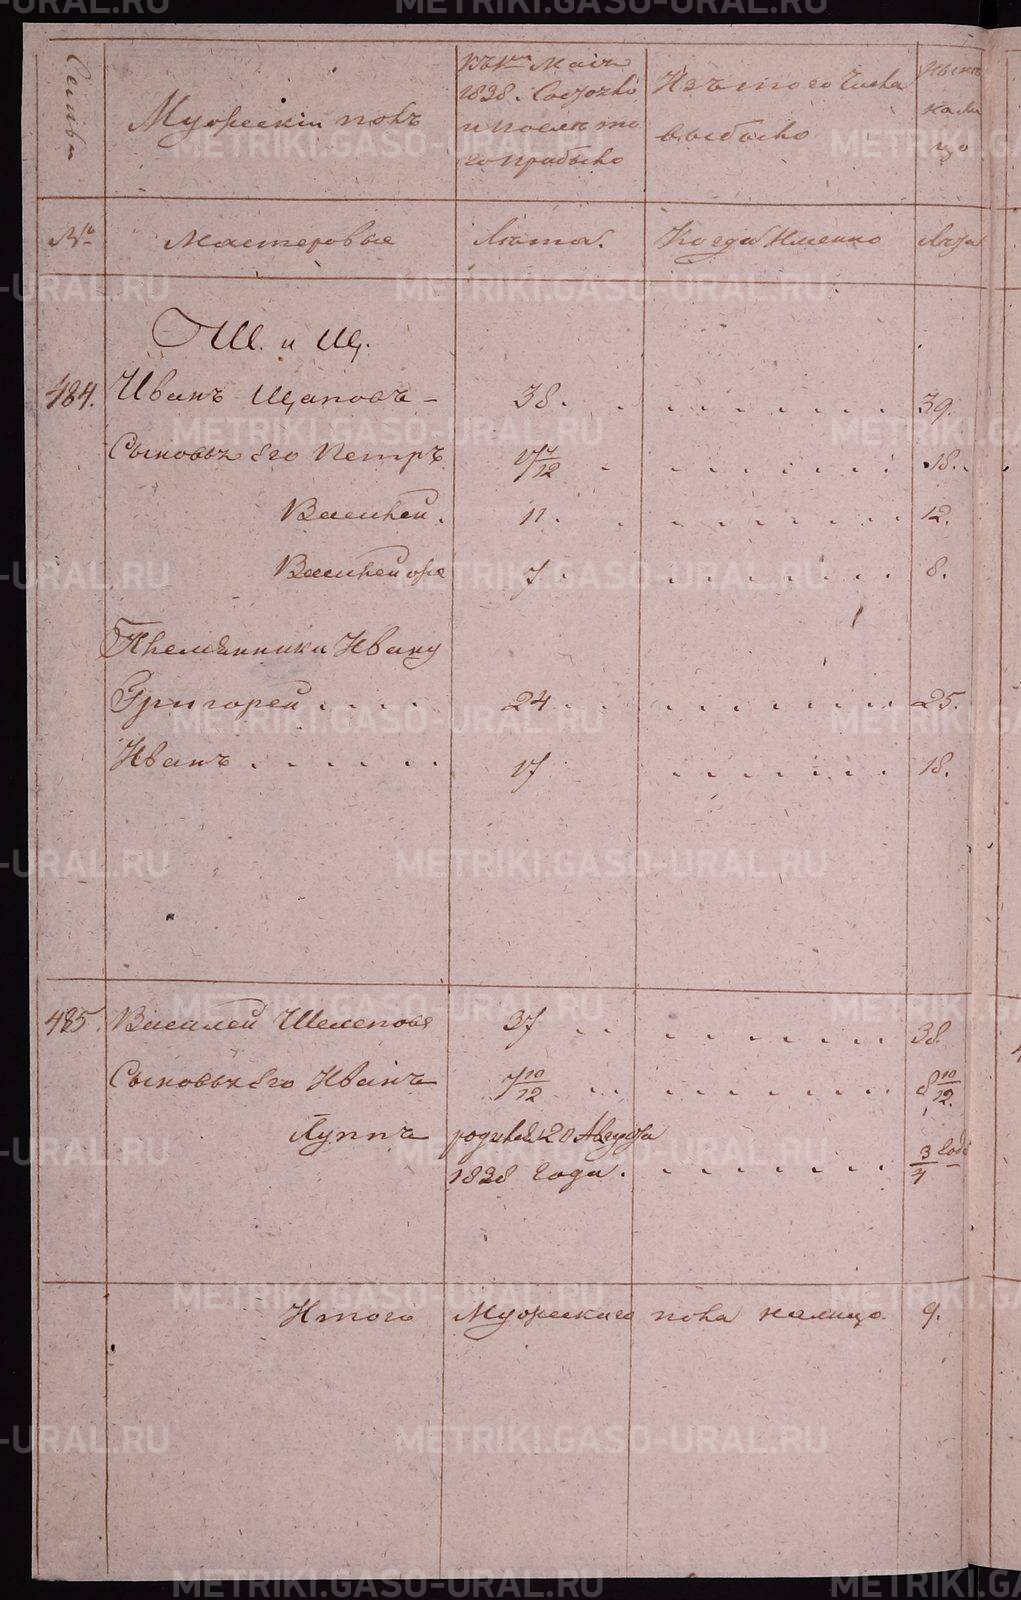 Семьи
Мужескій полъ
Къ 1му Маія
1838. Состояло
и послѣ то
го прибыло
Изъ того Числа
выбыло
Нынѣ
на ли
цо
№
Мастеровые
Лѣта.
Когда Именно
Лѣта
Ш. и Щ.
484. Иванъ Щаповъ - 38. 39.
Сыновья Его Петръ 17 4/12 18.
Василей. 11. 12.
Василей же 7. 8.
Племянники Ивану
Григорей 24 25.
Иванъ 17 18.
485. Василей Шелеповъ 37 38.
Сыновья Его Иванъ 7 10/12 8 10/12.
Луппъ родился 20 Августа
1838 Года. 3/4 Года
Итого Мужескаго пола налицо. 9.
METRIKI.GASO-URAL.RU